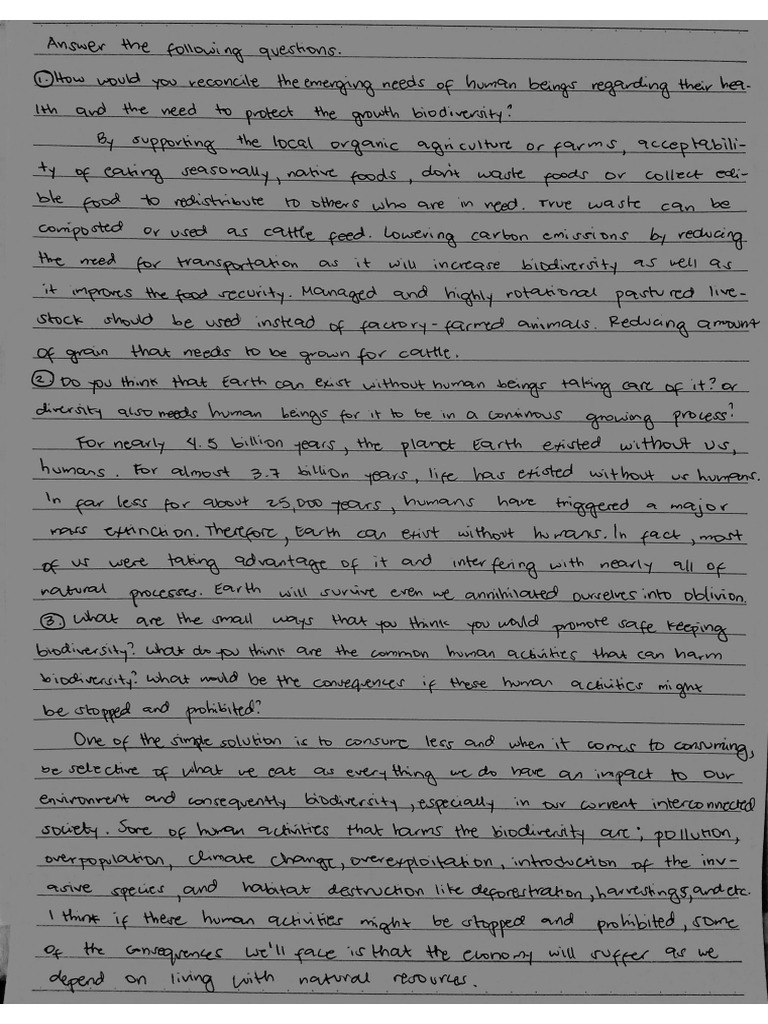 Answer the following questions.
1. How would you reconcile the emerging needs of human beings regarding their hea-
lth and the need to protect the growth biodiversity?
By supporting the local organic agriculture or farms, acceptabili-
ty of eating seasonally, native foods, don't waste foods or collect edi-
ble food to redistribute to others who are in need. True waste can be
composted or used as cattle feed. Lowering carbon emissions by reducing
the need for transportation as it will increase biodiversity as well as
it improves the food security. Managed and highly rotational pastured live-
stock should be used instead of factory-farmed animals. Reducing amount
of grain that needs to be grown for cattle.
2. Do you think that Earth can exist without human beings taking care of it? or
diversity also needs human beings for it to be in a continous growing process?
For nearly 4.5 billion years, the planet Earth existed without us,
humans. For almost 3.7 billion years, life has existed without us humans.
In far less for about 25,000 years, humans have triggered a major
mass extinction. Therefore, Earth can exist without humans. In fact, most
of us were taking advantage of it and interfering with nearly all of
natural processes. Earth will survive even we annihilated ourselves into oblivion.
3. What are the small ways that you think you would promote safe keeping
biodiversity? What do you think are the common human activities that can harm
biodiversity? What would be the consequences if these human activities might
be stopped and prohibited?
One of the simple solution is to consume less and when it comes to consuming,
be selective of what we eat as everything we do have an impact to our
environment and consequently biodiversity, especially in our current interconnected
society. Some of human activities that harms the biodiversity are; pollution,
overpopulation, climate change, overexploitation, introduction of the inv-
asive species, and habitat destruction like deforestration, harvestings, and etc.
I think if these human activities might be stopped and prohibited, some
of the consequences we'll face is that the economy will suffer as we
depend on living with natural resources.